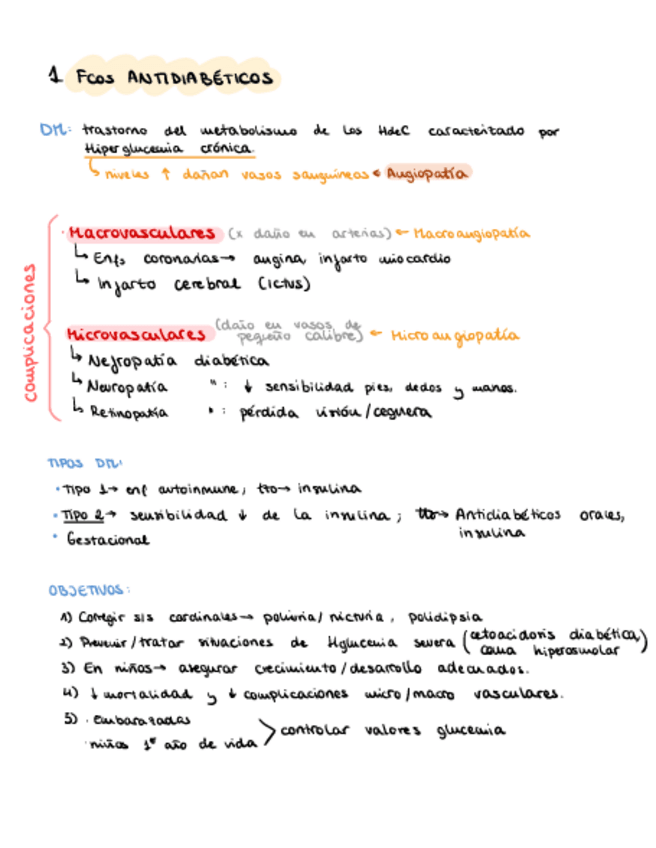 1 Fcos ANTIDIABÉTICOS
DM: trastorno del metabolismo de los HdeC caracterizado por
Hiperglucemia crónica.
niveles ↑ dañan vasos sanguíneos Angiopatía
complicaciones
· Macrovasculares (x daño en arterias) ← Macroangiopatía
↳ Enfs coronarias → angina, infarto miocardio
↳ Infarto cerebral (ictus)
Microvasculares (daño en vasos de pequeño calibre) ← Microangiopatía
↳ Nefropatía diabética
↳ Neuropatía " : ↓ sensibilidad pies, dedos y manos.
↳ Retinopatía " : pérdida visión/ceguera
TIPOS DM:
· Tipo 1 → enf autoinmune; tto → insulina
· Tipo 2 → sensibilidad ↓ de la insulina; tto → Antidiabéticos orales, insulina
· Gestacional
OBJETIVOS:
1) Corregir sis cardinales → poliuria/nicturia, polidipsia
2) Prevenir/tratar situaciones de Hglucemia severa (cetoacidosis diabética, coma hiperosmolar)
3) En niños → asegurar crecimiento/desarrollo adecuados.
4) ↓ mortalidad y ↓ complicaciones micro/macro vasculares.
5) · embarazadas
· niños 1er año de vida > controlar valores glucemia